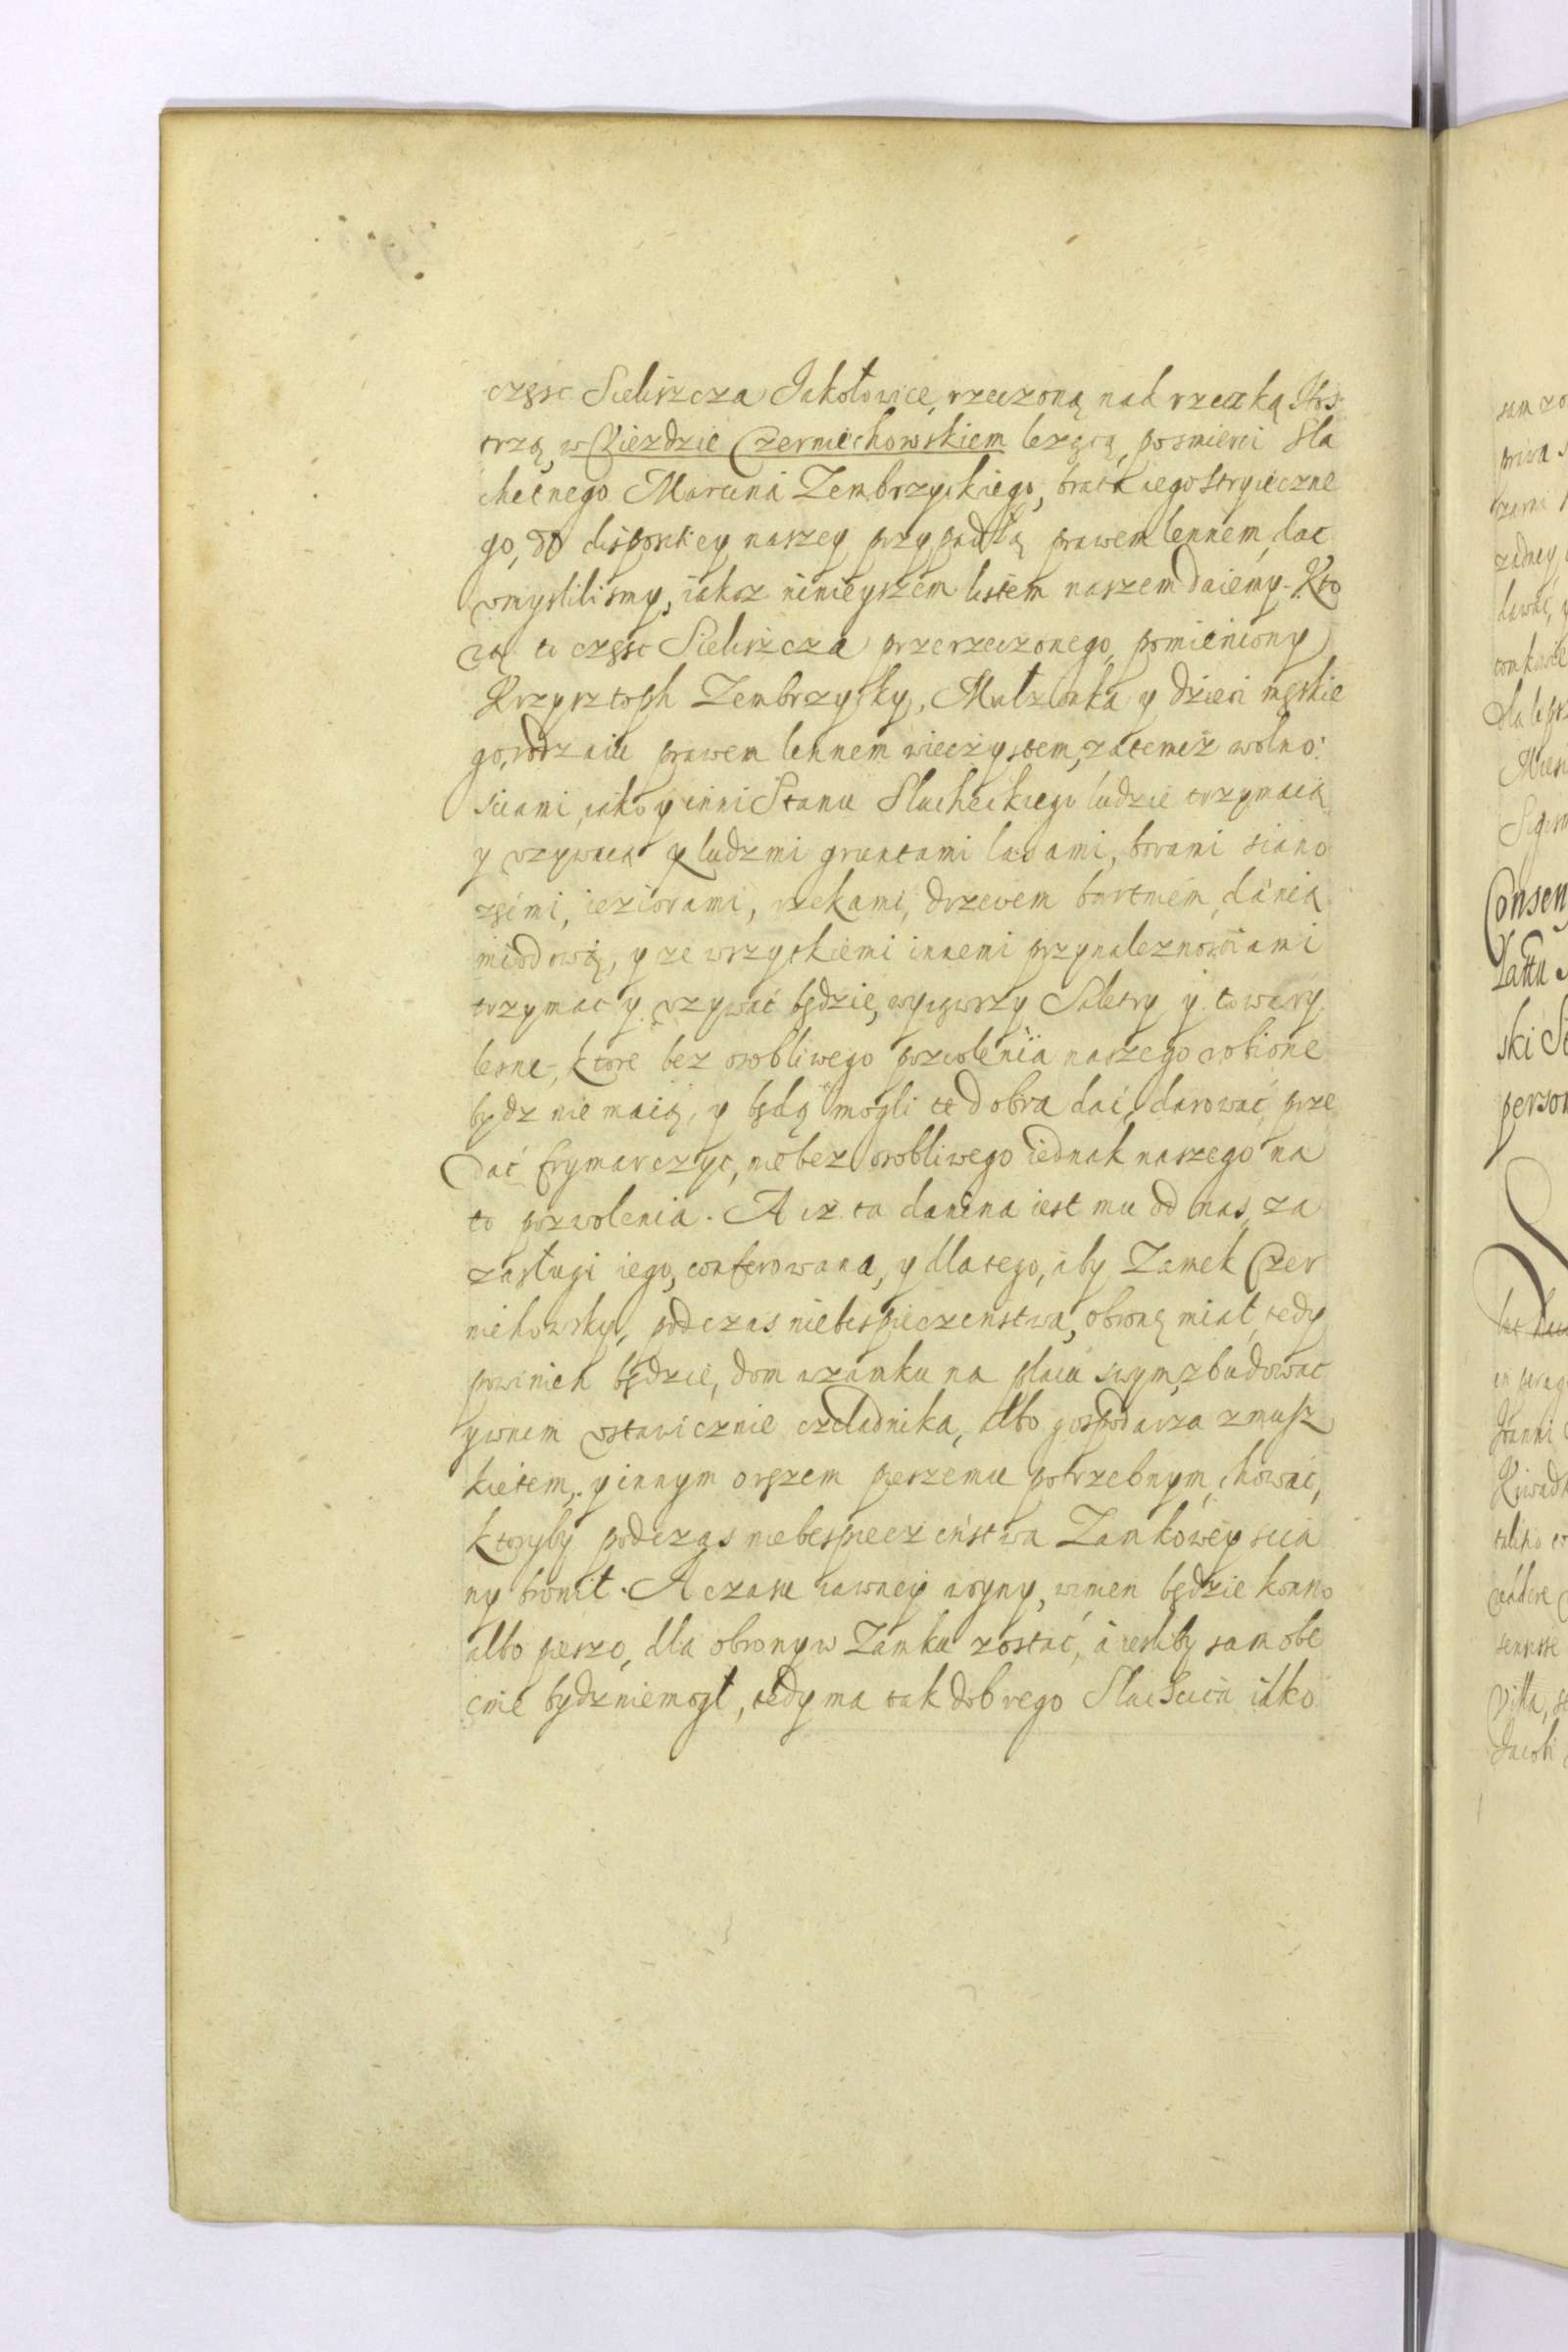 częsc Sieliszcza Jakołowice, rzeczoną nad rzeczką Os
trzą, w Vieździe Czerniechowskiem lezącą, posmierci Sla
chetnego Marcina Zembrzyckiego, brata iego stryieczne
go, do disposiciey naszey przypadłą prawem lennem, dac
vmyslilismy, iakoz ninieyszem listem naszem daiemy. Kto
rą to częsc Sieliszcza przerzeczonego, pomieniony
Krzysztoph Zembrzycky, Małzonka y dzieci męskie
go, rodzaiu prawem lennem wieczystem, zatemiż wolno:
sciami, iako y inni Stanu Slacheckiego ludzie trzymaią
y vzywaią y ludzmi gruntami lasami, borami siano
zęćmi, ieziorami, rzekami, drzewem bartnem, danią
miodową, y ze wszyskiemi innemi przynaleznosciami
trzymac y vzywać będzie, wyiąwszy Saletry y towary
lesne, ktore bez osobliwego pozwolenia naszego robione
bydz nie maią, y będą mogli te dobra dać, darować, prze
dać frymarczyc, nie bez osobliwego iednak naszego na
to pozwolenia. A iz ta danina iest mu od nas, za
zasługi iego, conferowana, y dlatego, aby Zamek Czer
niehowsky, podczas niebespieczenstwa, obronę miał, tedy
powinien będzie, dom w zamku na placu swym, zbudowac
y wnim vstawicznie czeladnika, albo gospodarza zmusz
kietem, y innym orężem pieszemu potrzebnym, chować,
ktoryby podczas niebespieczeństwa Zamkowey scia
ny bronił. A czasu iawney woyny, winien będzie konno
albo pieszo, dla obrony w Zamku zostać, a iesliby sam obe
cnie bydz niemogł, tedy ma tak dobrego Slachcica iako